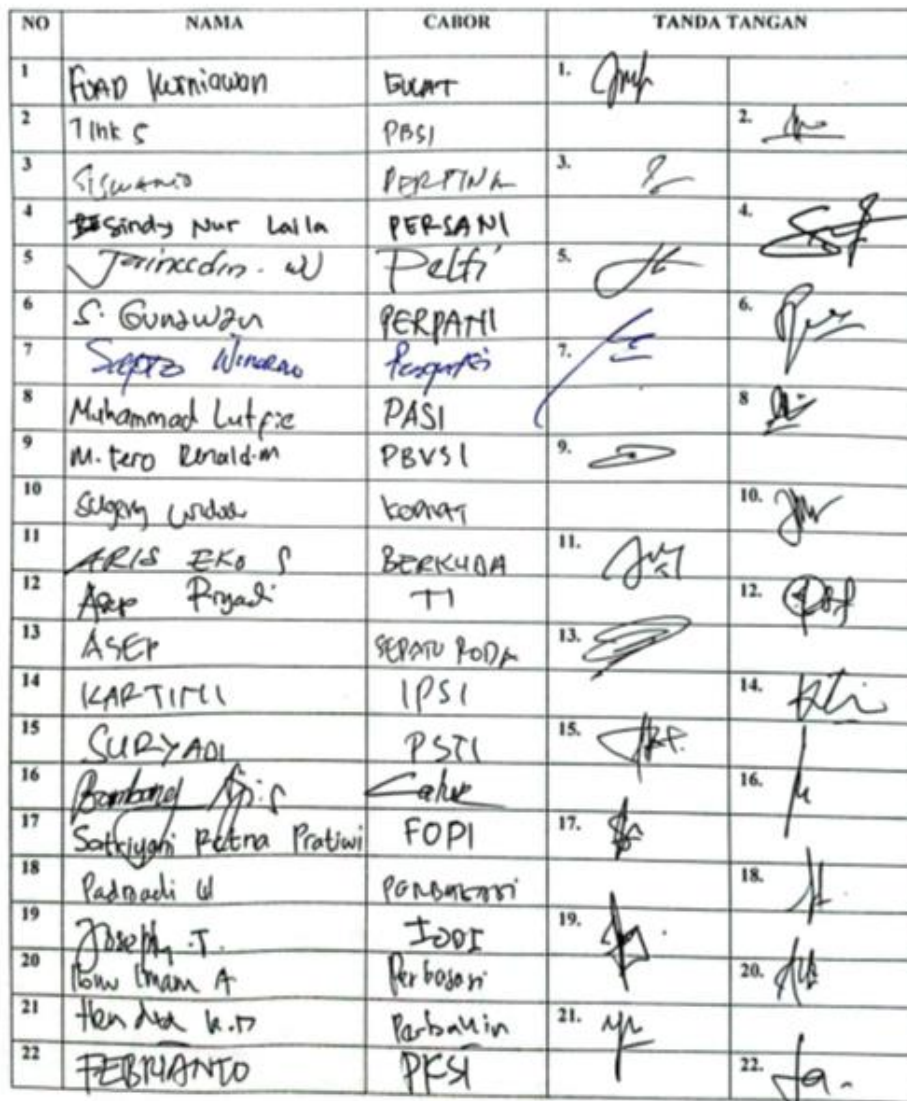 NO NAMA CABOR TANDA TANGAN
1 FUAD Kurniawan GULAT 1.
2 Tink S PBSI 2.
3 Siswanto PERTINA 3.
4 Sindy Nur Laila PERSANI 4.
5 Pelti 5.
6 S. Gunawan PERPANI 6.
7 Septo Winarno 7.
8 Muhammad Lutfie PASI 8
9 M. tero Renaldi.m PBVSI 9.
10 10.
11 ARIS EKO S BERKUDA 11.
12 Asep Riyadi TI 12.
13 ASEP SEPATU RODA 13.
14 KARTINI IPSI 14.
15 SURYADI PSTI 15.
16 Bambang 16.
17 Satriyani Retna Pratiwi FOPI 17.
18 Padmadi W 18.
19 Joseph. T. IODI 19.
20 Imam A Perbasasi 20.
21 Hendra K.D Perbakin 21.
22 FEBRIANTO PKSI 22.